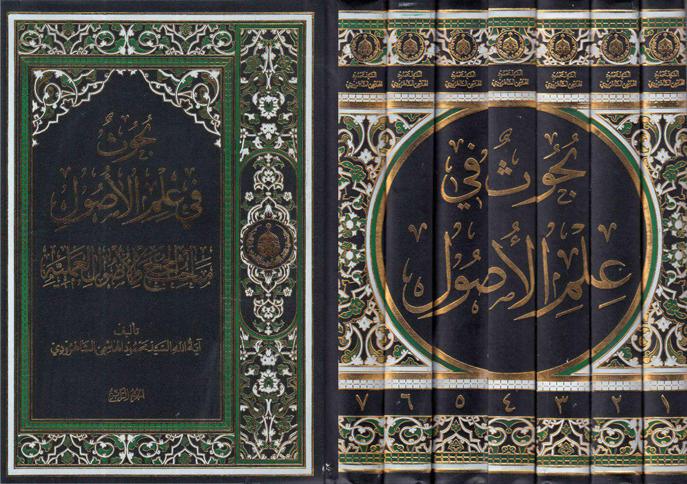 بُحُوثٌ
فِي عِلْمِ الْأُصُولِ
مباحث الحجج والأصول العملية
تأليف
آية الله السيد محمود الهاشمي الشاهرودي
بُحُوثٌ فِي
عِلْمِ الْأُصُولِ
٧ ٦ ٥ ٤ ٣ ٢ ١